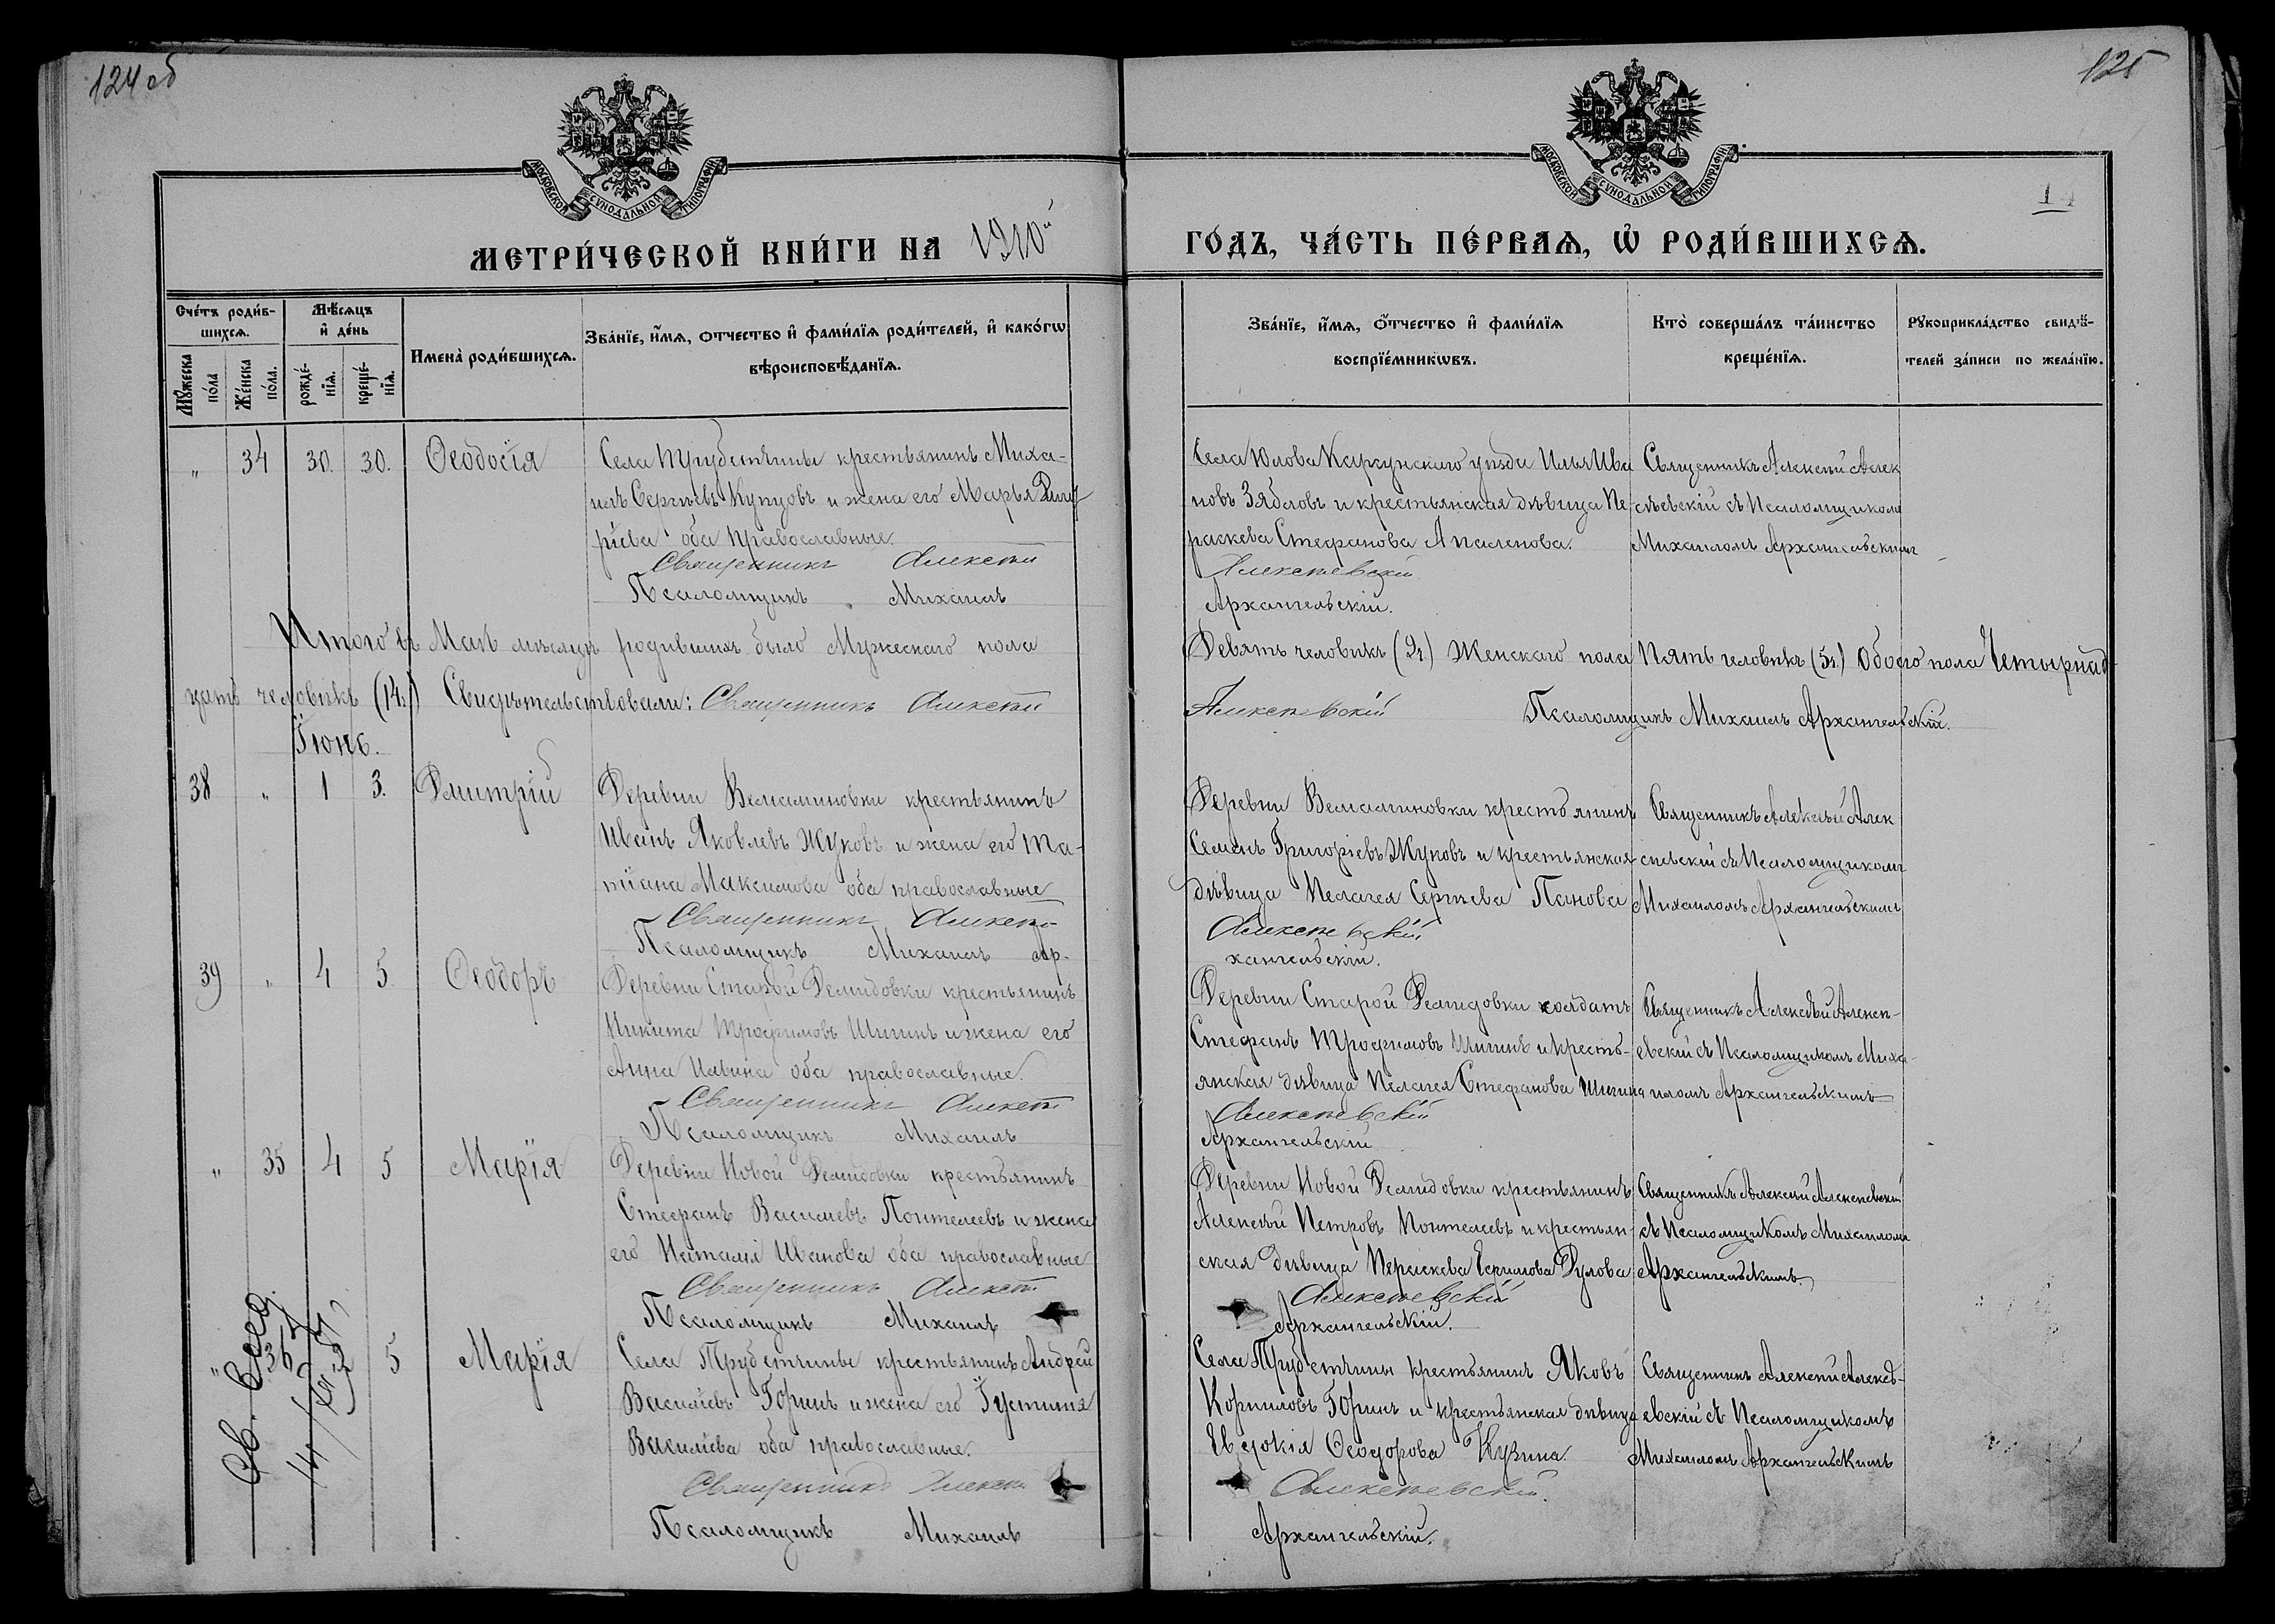 124 об
125
МОСКОВСКОЙ СУНОДАЛЬНОЙ ТИПОГРАФІИ
МОСКОВСКОЙ СУНОДАЛЬНОЙ ТИПОГРАФІИ
МЕТРИ́ЧЕСКОЙ КНИ́ГИ НА 1910й
ГО́ДЪ, ЧА́СТЬ ПЕ́РВАѦ, Ѽ РОДИ́ВШИХСѦ.
Сче́тъ роди́в-
шихсѧ.
Мѣ́сѧцъ
и҆ де́нь
Мꙋ́жеска
по́ла
Же́нска
по́ла.
рожде́-
нїѧ.
креще́-
нїѧ.
Имена̀ роди́вшихсѧ.
Зва́нїе, и҆́мѧ, ѻ҆́тчество и҆ фами́лїѧ роди́телей, и҆ како́гѡ
вѣроисповѣ́данїѧ.
Зва́нїе, и҆́мѧ, ѻ҆́тчество и҆ фами́лїѧ
воспрїе́мникѡвъ.
Кто̀ соверша́лъ та́инство
креще́нїѧ.
Рꙋкоприкла́дство свидѣ́-
телей за́писи по жела́нїю.
" 34 30. 30. Ѳеодосія
Села Трубетчины крестьянинъ Миха-
илъ Сергѣевъ Купцовъ и жена его Марья Дмит
ріева оба православные.
Священникъ Алексѣй
Псаломщикъ Михаилъ
Села Юлова Карсунскаго уѣзда Илья Ива
новъ Зябловъ и крестьянская дѣвица Па-
раскева Стефанова Апаленова.
Алексѣевскій
Архангельскій.
Священникъ Алексѣй Алек
сѣевскій съ Псаломщикомъ
Михаиломъ Архангельскимъ
Итого въ Маѣ мѣсяцѣ родившихъ было Мужескаго пола
Девять человѣкъ (9ч.) Женскаго пола Пять человѣкъ (5ч.) Обоего пола Четырнад-
цать человѣкъ (14ч.) Свидѣтельствовали: Священникъ Алексѣй
Алексѣевскій Псаломщикъ Михаилъ Архангельскій.
Іюнь.
38 " 1 3. Димитрій
Деревни Вельяминовки крестьянинъ
Иванъ Яковлевъ Жуковъ и жена его Та-
тіана Максимова оба православные
Священникъ Алексѣй
Псаломщикъ Михаилъ Ар-
Деревни Вельяминовки крестьянинъ
Семенъ Григорьевъ Жуковъ и крестьянская
дѣвица Пелагея Сергѣева Панова
Алексѣевскій
хангельскій.
Священникъ Алексѣй Алек
сѣевскій съ Псаломщикомъ
Михаиломъ Архангельскимъ
39 " 4 5. Ѳеодоръ
Деревни Старой Демидовки крестьянинъ
Никита Трофимовъ Шигинъ и жена его
Анна Ильина оба православные.
Священникъ Алексѣй
Псаломщикъ Михаилъ
Деревни Старой Демидовки солдатъ
Стефанъ Трофимовъ Шигинъ и кресть-
янская дѣвица Пелагея Стефанова Шигина
Алексѣевскій
Архангельскій
Священникъ Алексѣй Алексѣ-
евскій съ Псаломщикомъ Миха-
иломъ Архангельскимъ
" 35 4 5 Марія
Деревни Новой Демидовки крестьянинъ
Стефанъ Василіевъ Понтелеевъ и жена
его Наталія Иванова оба православные
Священникъ Алексѣй
Псаломщикъ Михаилъ
Деревни Новой Демидовки крестьянинъ
Алексѣй Петровъ Понтелеевъ и крестьян-
ская дѣвица Параскева Дулова
Алексѣевскій
Архангельскій.
Священникъ Алексѣй Алексѣевскій
съ Псаломщикомъ Михаиломъ
Архангельскимъ.
" 36 5 Марія
Села Трубетчины крестьянинъ Андрей
Василіевъ Горинъ и жена его Іустинія
Василіева оба православные.
Священникъ Алексѣй
Псаломщикъ Михаилъ
Села Трубетчины крестьянинъ Яковъ
Корниловъ Горинъ и крестьянская дѣвица
Евдокія Ѳеодорова Кузина.
Алексѣевскій.
Архангельскій.
Священникъ Алексѣй Алексѣ-
евскій съ Псаломщикомъ
Михаиломъ Архангельскимъ